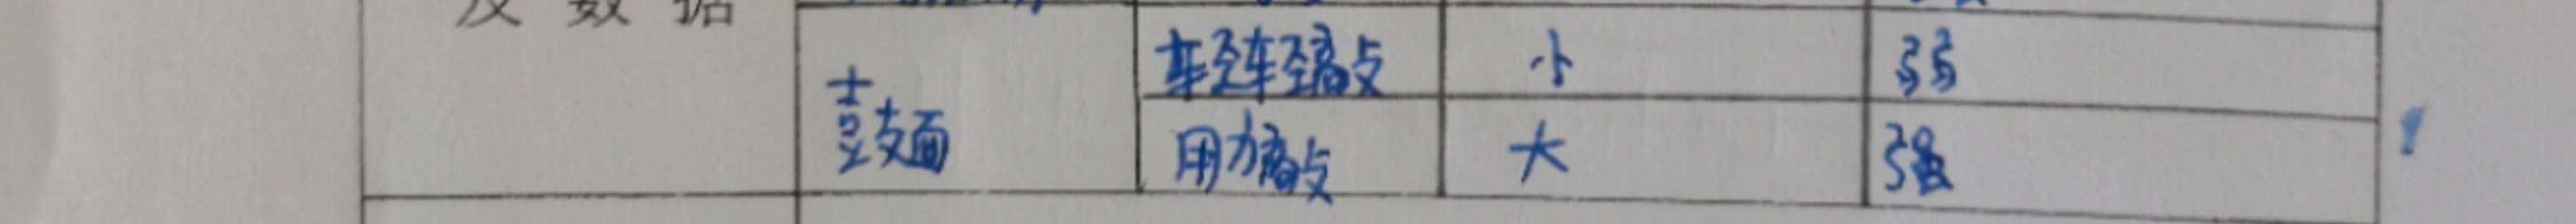 及数据
鼓面
轻轻敲
小
弱
用力敲
大
强